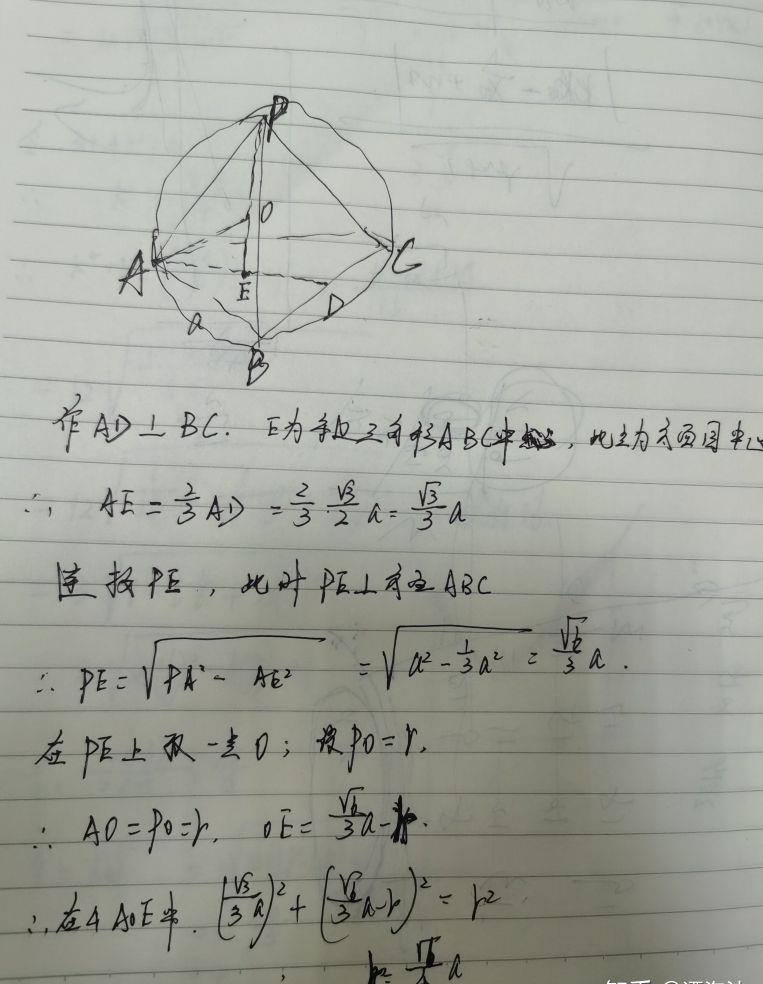 P
O
A
C
E
D
a
B
作 AD⊥BC. E为等边三角形ABC中心, 此立为方面图中心
∴ AE = 2/3 AD = 2/3 · √3/2 a = √3/3 a
连接PE, 此时 PE⊥ ABC
∴ PE = √(PA² - AE²) = √(a² - 1/3 a²) = √6/3 a.
在PE上取一点O; 设PO=r,
∴ AO=PO=r, OE= √6/3 a - r.
∴在△AOE中. (√3/3 a)² + (√6/3 a - r)² = r²
r = √6/4 a
知乎